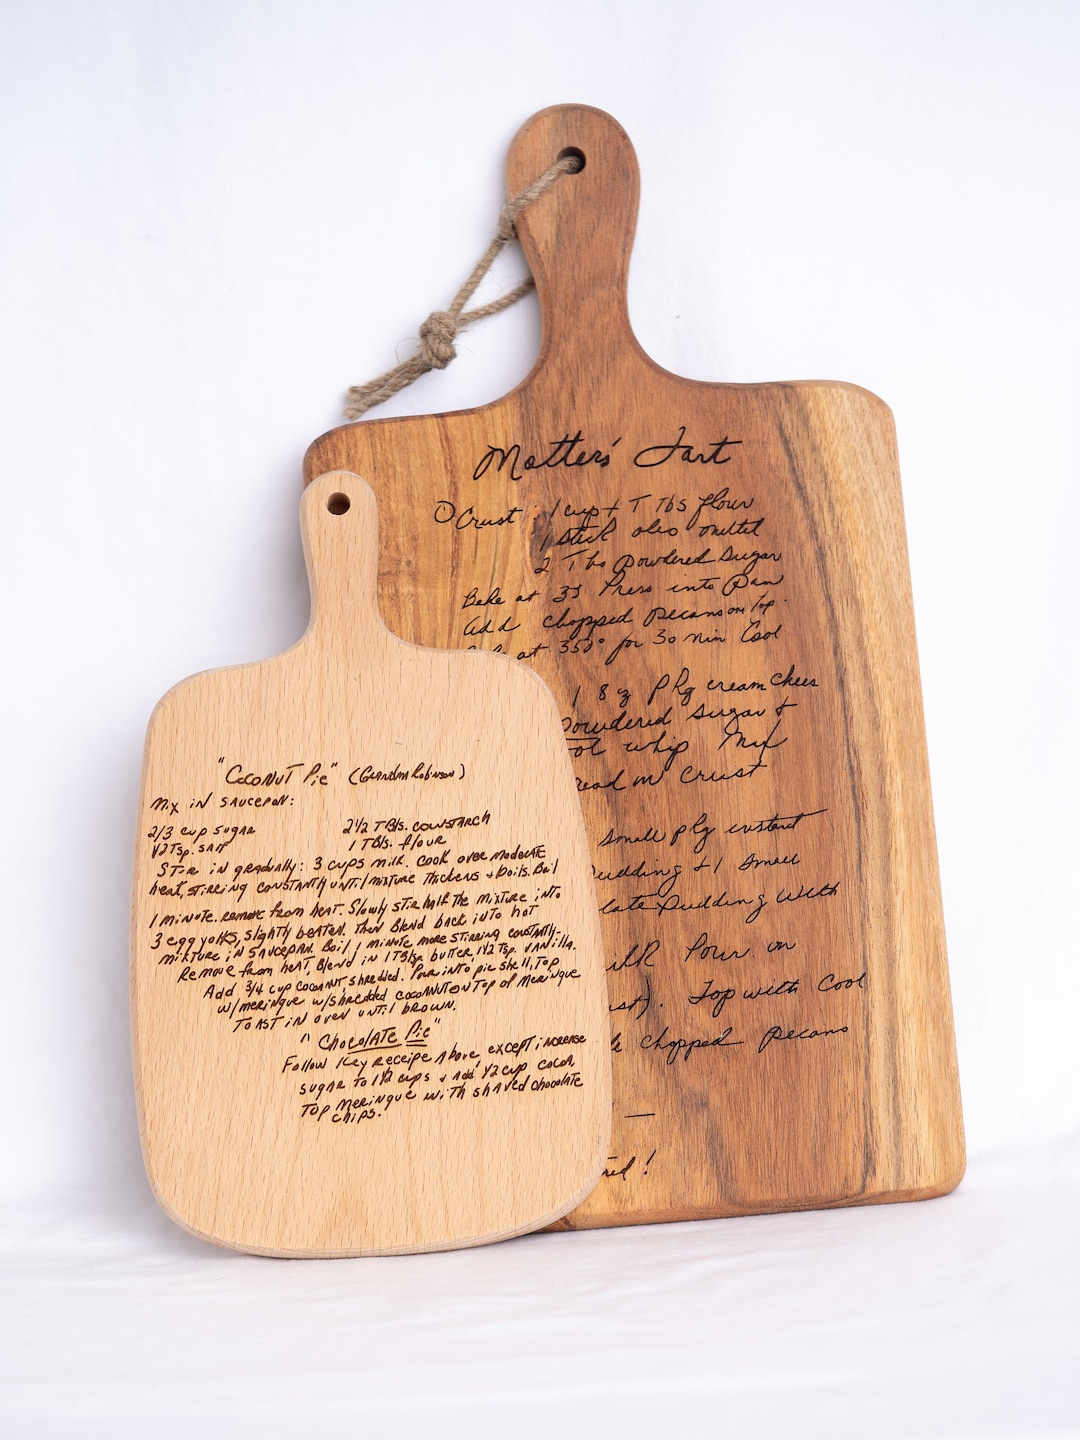 Motters' Tart
① Crust : 1 cup + 1 Tbs flour
1 stick oleo melted
2 Tbs Powdered Sugar
Press into Pan
Add chopped Pecans on top.
at 350° for 30 min Cool
1 8 oz pkg cream chees
Powdered sugar +
whip Mix
in crust
small pkg instant
+ 1 small
Pudding with
Pour on
Top with Cool
chopped Pecans
—
!
"Coconut Pie" (Grandma Robinson)
Mix in saucepan:
2/3 cup sugar 2 1/2 TBls. cornstarch
1/2 Tsp. salt 1 TBls. flour
Stir in gradually: 3 cups milk. Cook over moderate
heat, stirring constantly until mixture thickens + boils. Boil
1 minute. remove from heat. Slowly stir half the mixture into
3 egg yolks, slightly beaten. Then Blend back into hot
mixture in saucepan. Boil 1 minute more stirring constantly.
Remove from heat, Blend in 1 butter, 1 1/2 Tsp. vanilla.
Add 3/4 cup coconut, shredded. Pour into pie shell, Top
w/meringue w/shredded coconut on top of Meringue
Toast in oven until brown.
"Chocolate Pie"
Follow Key receipe Above except increase
sugar to 1 1/2 cups + Add 1/2 cup
Top Meringue with shaved chocolate
chips.